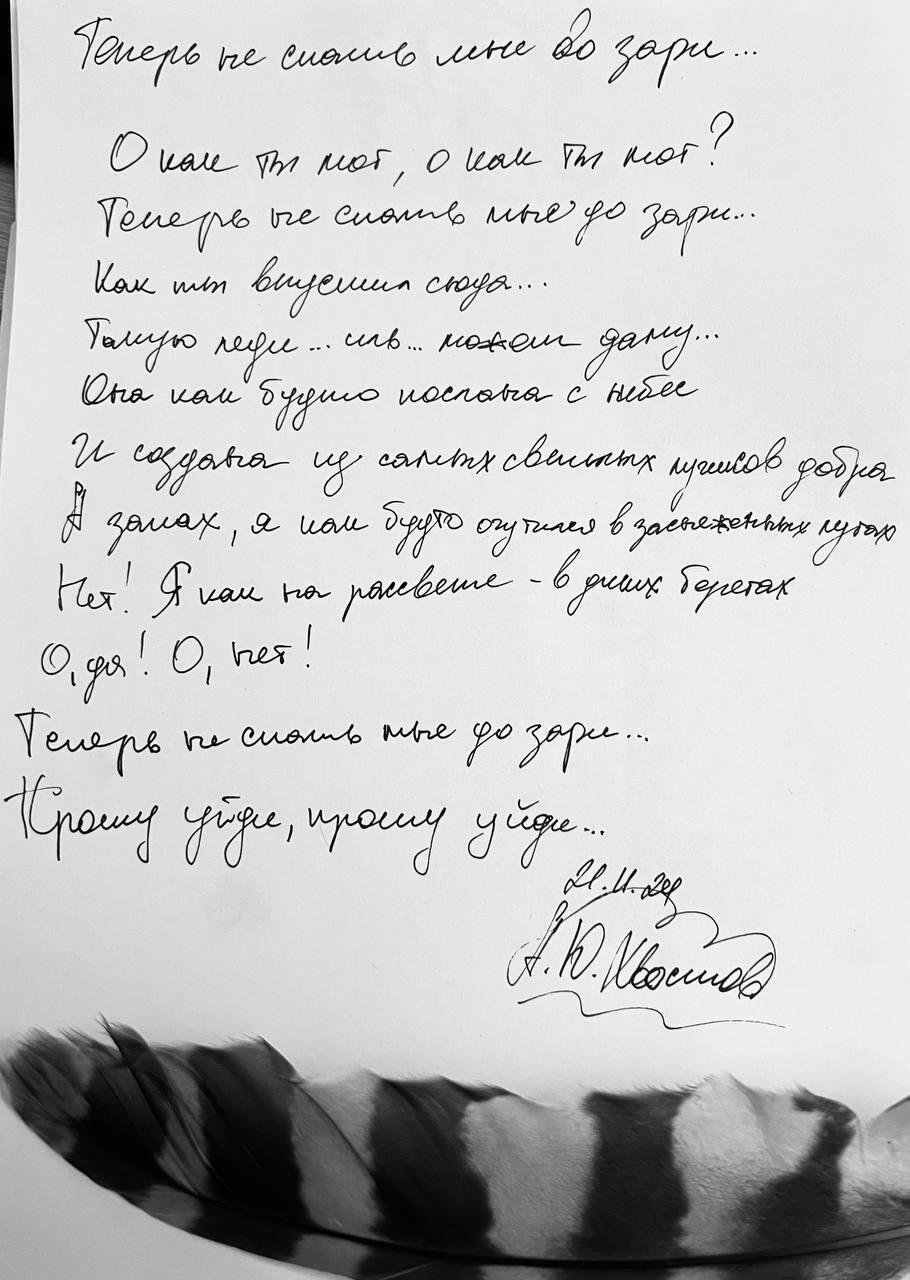 Теперь не спать мне до зари...
О как ты мог, о как ты мог?
Теперь не спать мне до зари...
Как ты впустил сюда...
Такую леди... иль... может даму...
Она как будто послана с небес
И создана из самых светлых лучиков добра
А запах, я как будто очутился в заснеженных лугах
Нет! Я как на рассвете - в диких берегах
О, да! О, нет!
Теперь не спать мне до зари...
Прошу уйди, прошу уйди...
21.11.24
А.Ю. Хвостов